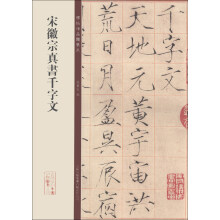 宋徽宗真書千字文
千字文
天地元黃宇宙洪
荒日月盈昃辰宿